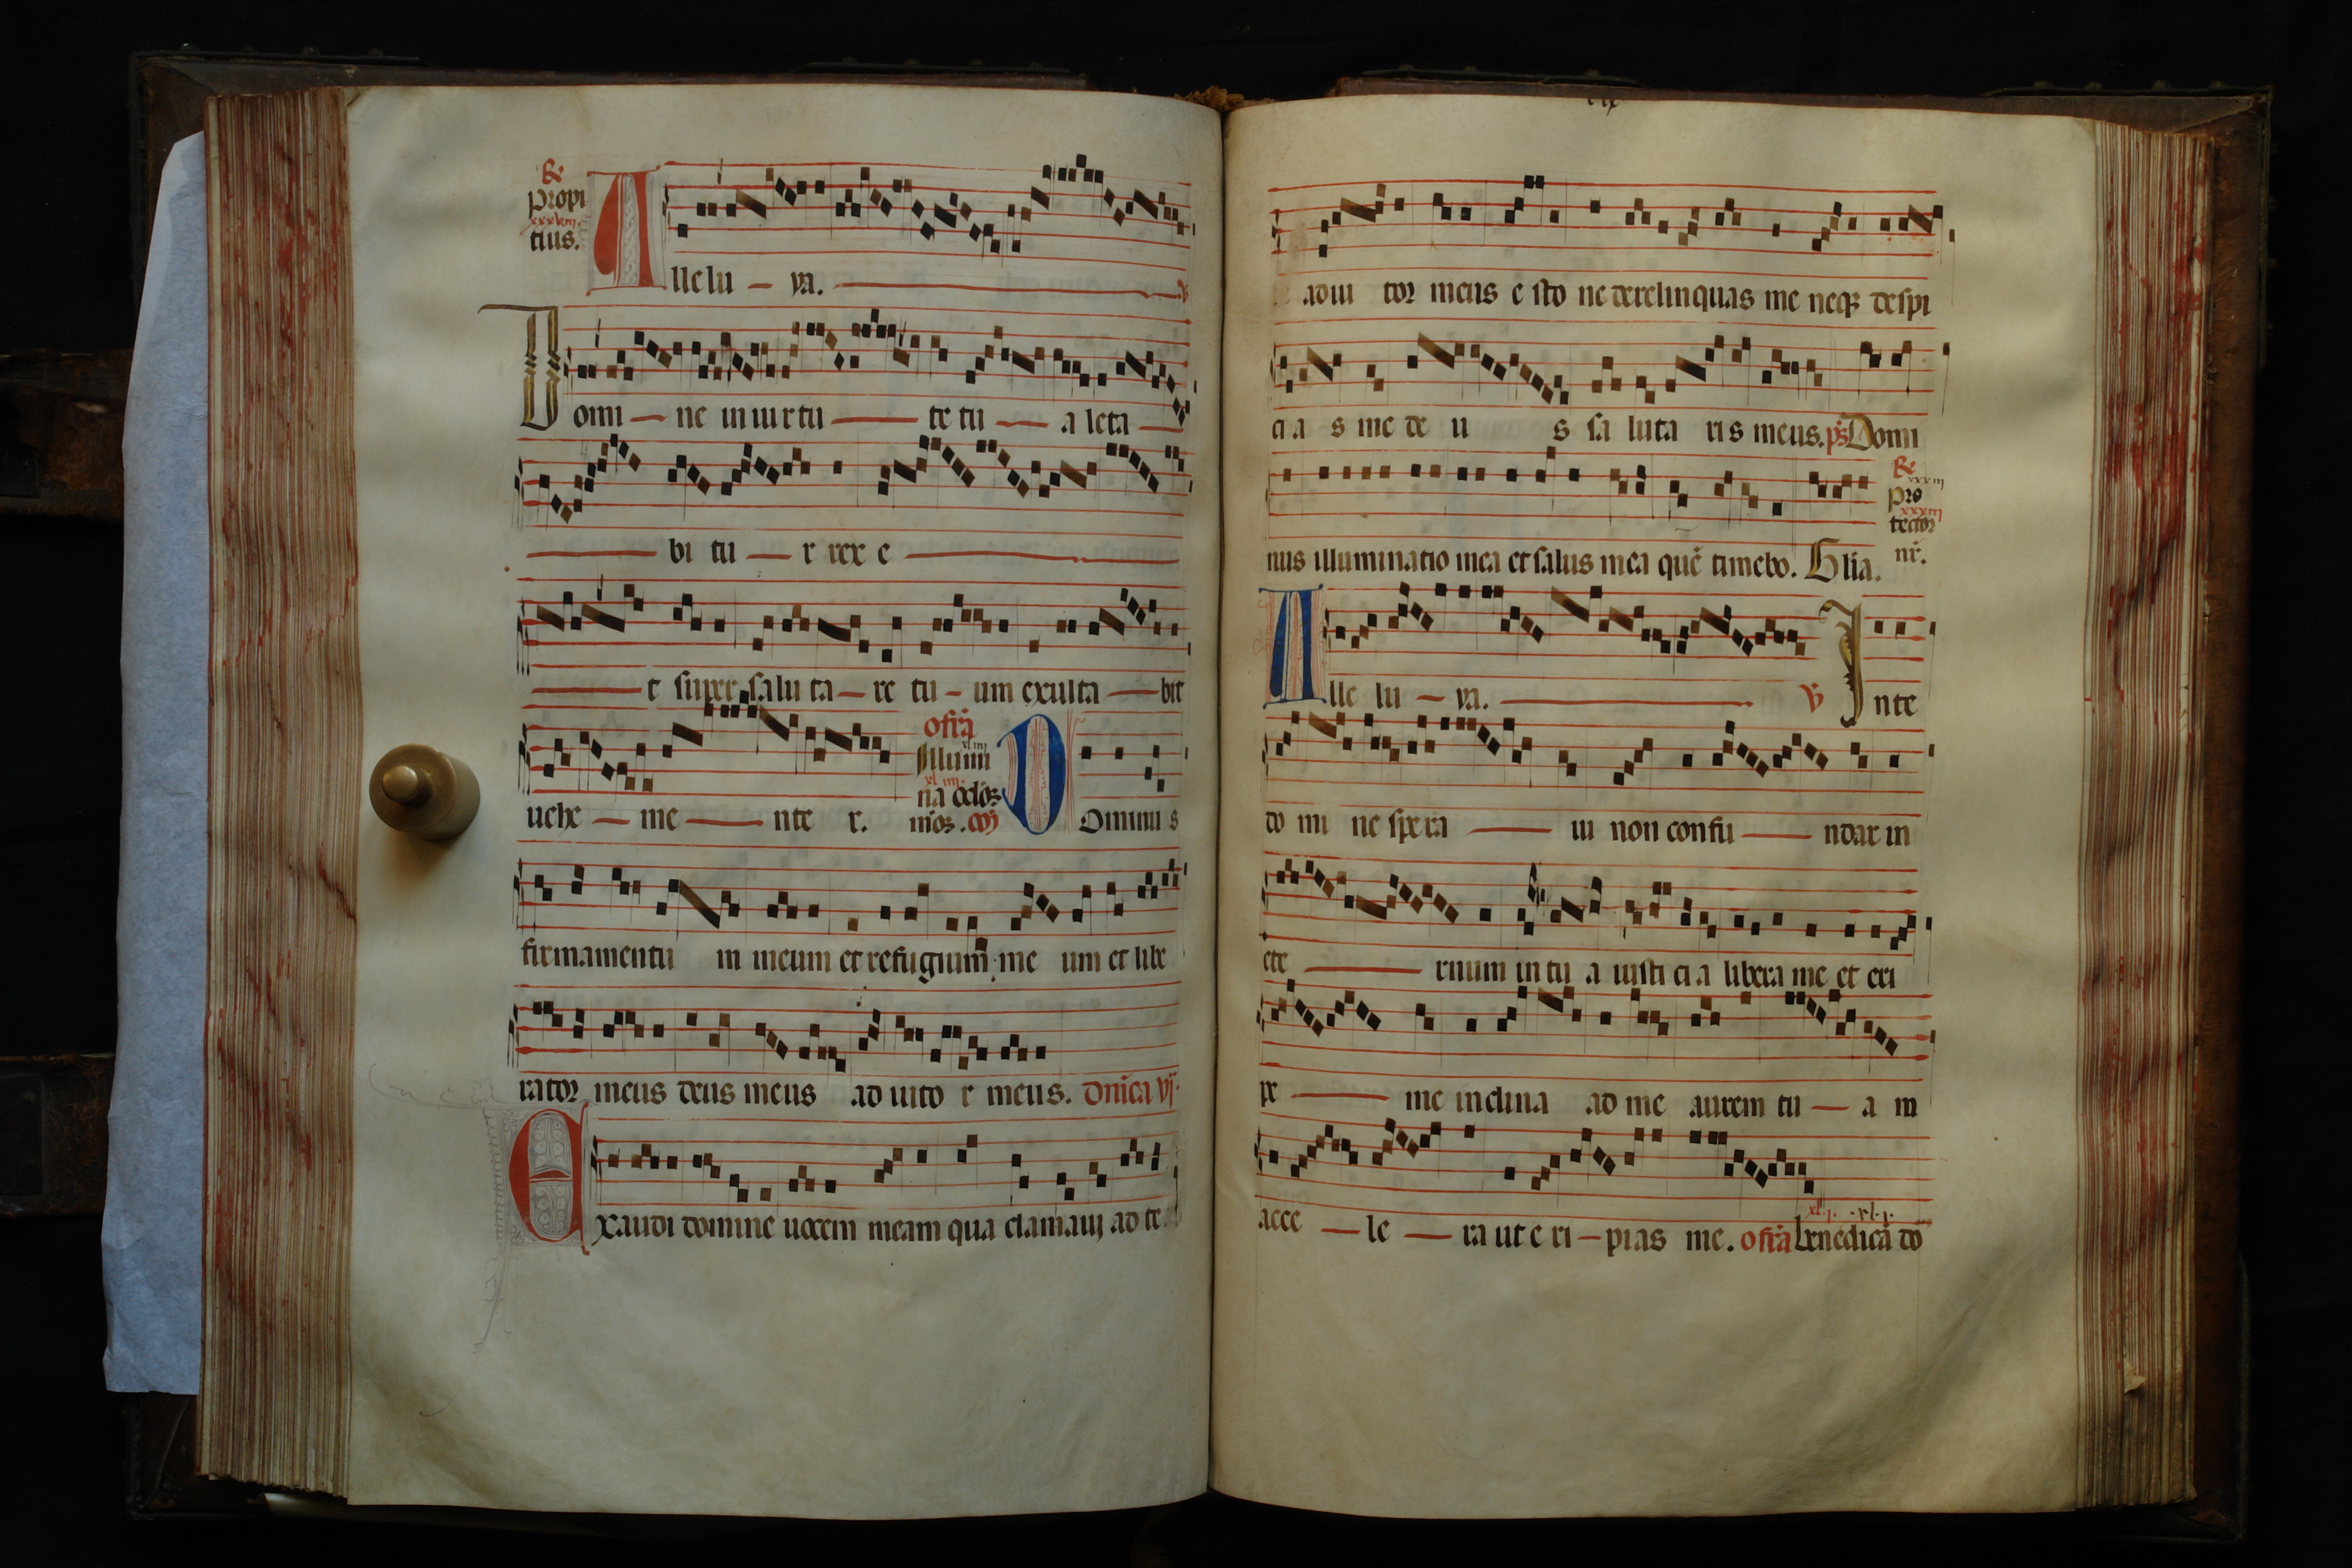 propi
xxxium.
tius.
Allelu — ya.
Domi — ne in uirtu — te tu — a leta —
— bi tu — r rex e —
— t super salu ta — re tu — um exulta — bit
uehe — me — nte r. offa Illumi
na oclos
mos. Dominus
firmamentu m meum et refugium me um et libe
rator meus deus meus ad iuto r meus. Dnica vj.
Exaudi domine uocem meam qua clamaui ad te
adiu tor meus e sto ne derelinquas me neq despi
ci a s me de u s sa luta ri s meus. ps Domi
nus illuminatio mea et salus mea que timebo. Glia.
pro
tector
nr.
Alle lu — ya. — v In te
do mi ne spe ra — ui non confu — ndar in
ete — rnum in tu a iusti ci a libera me et eri
pe — me inclina ad me aurem tu — a m
acce — le — ra ut e ri — pias me. offa benedica do